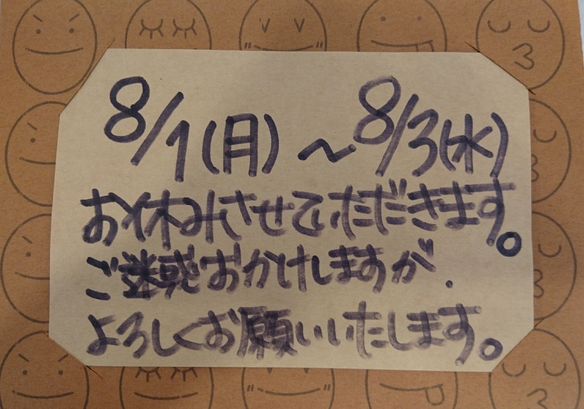 8/1(月)～8/3(水)
お休みさせていただきます。
ご迷惑おかけしますが、
よろしくお願いいたします。